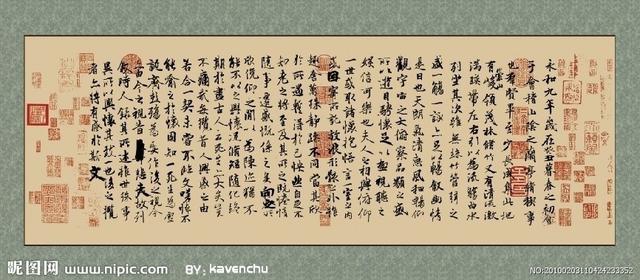 永和九年歲在癸丑暮春之初會
于會稽山陰之蘭亭脩禊事
也群賢畢至少長咸集此地
有崇山峻領茂林脩竹又有清流激
湍暎帶左右引以為流觴曲水
列坐其次雖無絲竹管弦之
盛一觴一詠亦足以暢敘幽情
是日也天朗氣清惠風和暢仰
觀宇宙之大俯察品類之盛
所以遊目騁懷足以極視聽之
娛信可樂也夫人之相與俯仰
一世或取諸懷抱悟言一室之內
或因寄所託放浪形骸之外雖
趣舍萬殊靜躁不同當其欣
於所遇蹔得於己怏然自足不
知老之將至及其所之既惓情
隨事遷感慨係之矣向之所
欣俛仰之閒以為陳迹猶不
能不以之興懷況脩短隨化終
期於盡古人云死生亦大矣豈
不痛哉每攬昔人興感之由
若合一契未嘗不臨文嗟悼不
能喻之於懷固知一死生為虛
誕齊彭殤為妄作後之視今
亦由今之視昔悲夫故列
敘時人錄其所述雖世殊事
異所以興懷其致一也後之攬
者亦將有感於斯文
昵图网
www.nipic.com
BY: kavenchu
NO:20100203110424233352